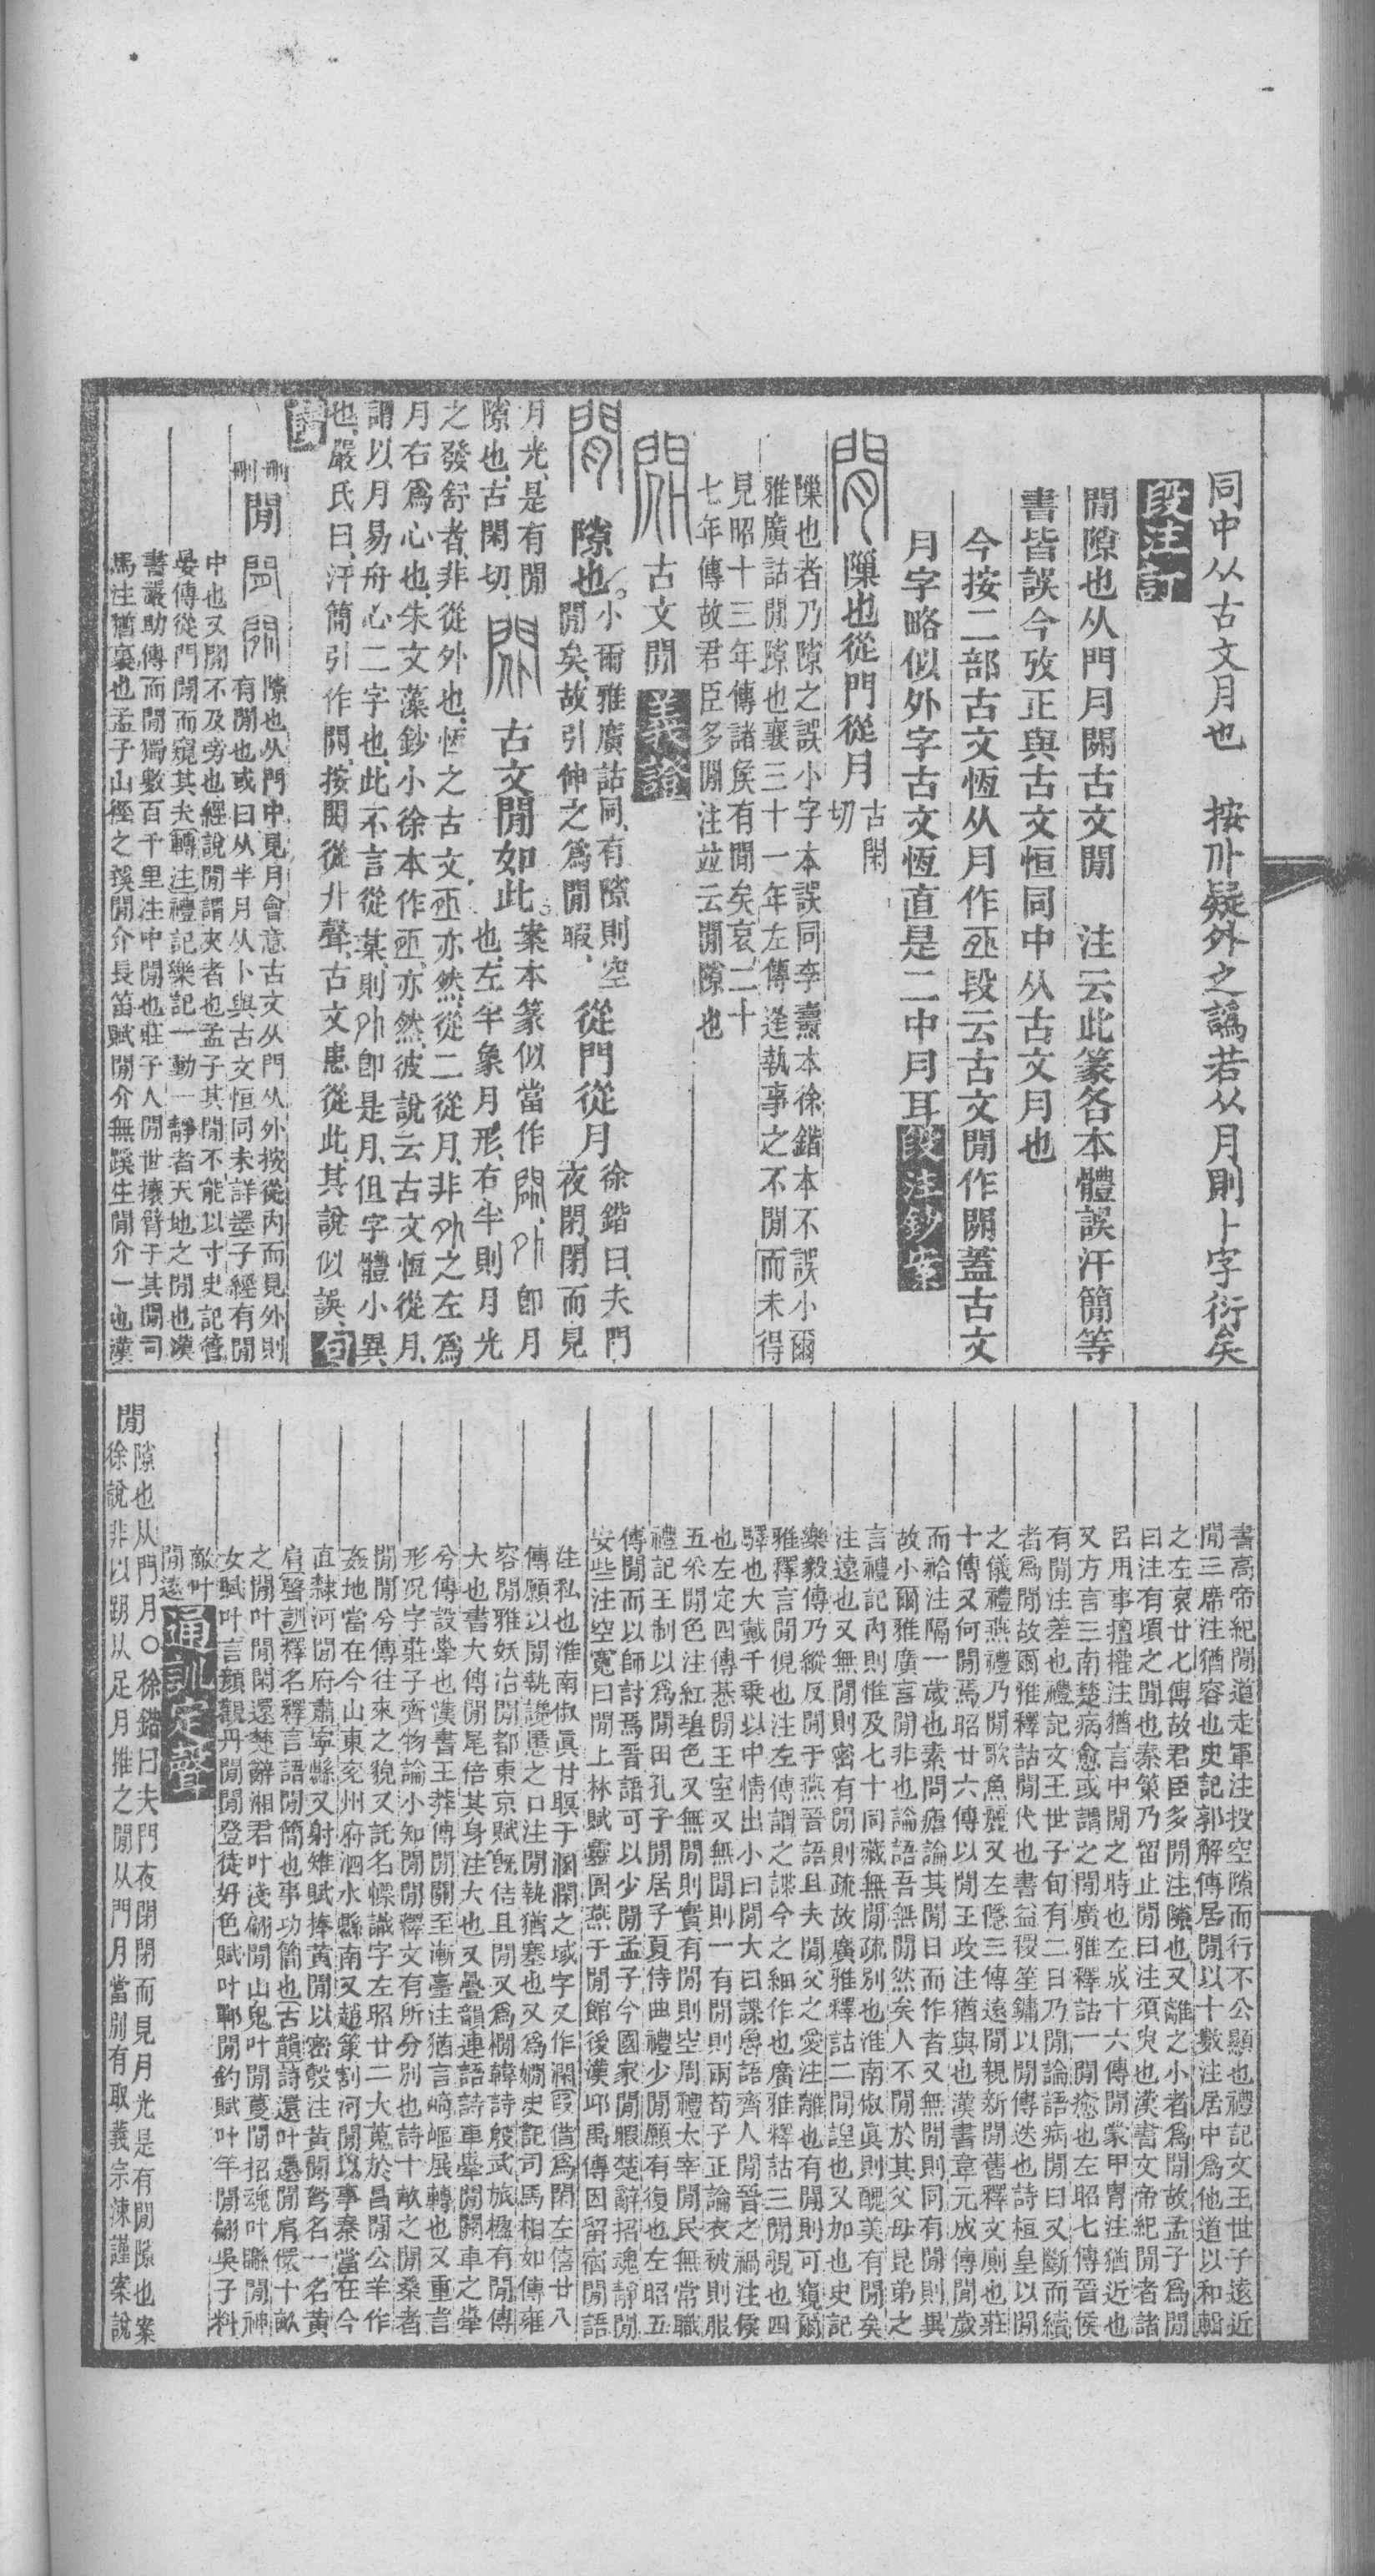 同中从古文月也　按外疑外之譌若从月則卜字衍矣
段注訂
閒隙也从門月𨳢古文閒　注云此篆各本體誤汗簡等
書皆誤今攷正與古文恒同中从古文月也
今按二部古文恆从月作𠄨段云古文閒作𨳢蓋古文
月字略似外字古文恆直是二中月耳 段注鈔案
閒 隟也從門從月 古閑
切
隟也者乃隙之誤小字本誤同李燾本徐鍇本不誤小爾
雅廣詁閒隙也襄三十一年左傳逢執事之不閒而未得
見昭十三年傳諸矦有閒矣哀二十
七年傳故君臣多閒注竝云閒隙也
古文閒 義證
閒 隙也 小爾雅廣詁同、有隙則空
閒矣、故引伸之爲閒暇、
從門從月 徐鍇曰、夫門
夜閉、閉而見
月光、是有閒
隙也、古閑切、
古文閒如此 案本篆似當作𨳢、外卽月
也、左半象月形、右半則月光
之發舒者、非從外也、恆之古文𠄨亦然、從二從月、非外之左爲
月右爲心也、朱文藻鈔小徐本作𠄨、亦然、彼說云古文恆從月、
謂以月易舟心二字也、此不言從某、則外卽是月、但字體小異
也、嚴氏曰、汗簡引作𨳢、按閎從廾聲、古文患從此、其說似誤、 句
讀
刪
刪 閒 隙也从門中見月會意古文从門从外按從內而見外則
有閒也或曰从半月从卜與古文恒同未詳墨子經有閒
中也又閒不及旁也經說閒謂夾者也孟子其閒不能以寸史記管
晏傳從門閒而窺其夫轉注禮記樂記一動一靜者天地之閒也漢
書嚴助傳而閒獨數百千里注中閒也莊子人閒世攘臂于其閒司
馬注猶裏也孟子山徑之蹊閒介長笛賦閒介無蹊生閒介一也漢
書高帝紀閒道走軍注投空隙而行不公顯也禮記文王世子遠近
閒三席注猶容也史記郭解傳居閒以十數注居中爲他道以和輯
之左哀廿七傳故君臣多閒注隙也又離之小者爲閒故孟子爲閒
曰注有頃之閒也秦策乃留止閒曰注須臾也漢書文帝紀閒者諸
呂用事擅權注猶言中閒之時也左成十六傳閒蒙甲冑注猶近也
又方言三南楚病愈或謂之閒廣雅釋詁一閒瘉也左昭七傳晉侯
有閒注差也禮記文王世子旬有二日乃閒論語病閒曰又斷而續
者爲閒故爾雅釋詁閒代也書益稷笙鏞以閒傳迭也詩桓皇以閒
之儀禮燕禮乃閒歌魚麗又左隱三傳遠閒親新閒舊釋文廁也莊
十傳又何閒焉昭廿六傳以閒王政注猶與也漢書韋元成傳閒歲
而祫注隔一歲也素問瘧論其閒日而作者又無閒則同有閒則異
故小爾雅廣言閒非也論語吾無閒然矣人不閒於其父母昆弟之
言禮記內則惟及七十同藏無閒疏別也淮南俶眞則醜美有閒矣
注遠也又無閒則密有閒則疏故廣雅釋詁二閒諻也又加也史記
樂毅傳乃縱反閒于燕晉語且夫閒父之愛注離也有閒則可窺爾
雅釋言閒俔也注左傳謂之諜今之細作也廣雅釋詁三閒覗也四
驛也大戴千乘以中情出小曰閒大曰諜魯語齊人閒晉之禍注候
也左定四傳惎閒王室又無閒則一有閒則兩荀子正論衣被則服
五采閒色注紅碧色又無閒則實有閒則空周禮大宰閒民無常職
禮記王制以爲閒田孔子閒居子夏侍曲禮少閒願有復也左昭五
傳閒而以師討焉晉語可以少閒孟子今國家閒暇楚辭招魂靜閒
安些注空寬曰閒上林賦靈圄燕于閒館後漢邱禹傳因留宿閒語
注私也淮南俶眞甘瞑于溷澖之域字又作澖叚借爲閑左僖廿八
傳願以閒執讒慝之口注閒執猶塞也又爲嫺史記司馬相如傳雍
容閒雅妖冶閒都東京賦旣佶且閒又爲橺韓詩殷武旅楹有閒傳
大也書大傳閒尾倍其身注大也又疊韻連語詩車舝閒關車之舝
兮傳設舝也漢書王莽傳閒關至漸臺注猶言崎嶇展轉也又重言
形况字莊子齊物論小知閒閒釋文有所分別也詩十畝之閒桑者
閒閒兮傳往來之貌又託名幖識字左昭廿二大蒐於昌閒公羊作
姦地當在今山東兖州府泗水縣南又趙策割河閒以事秦當在今
直隸河閒府肅寧縣又射雉賦捧黃閒以密彀注黃閒弩名一名黃
肩聲訓釋名釋言語閒簡也事功簡也古韻詩還叶還閒肩儇十畝
之閒叶閒閑還楚辭湘君叶淺翩閒山鬼叶閒蔓閒招魂叶㬎閒神
女賦叶言顏觀丹閒閒登徒好色賦叶鄲閒釣賦叶年閒翩吳子料
敵叶
閒遠 通訓定聲
閒 隙也从門月〇徐鍇曰夫門夜閉閉而見月光是有閒隙也案
徐說非以跀从足月推之閒从門月當別有取義宗涑謹案說